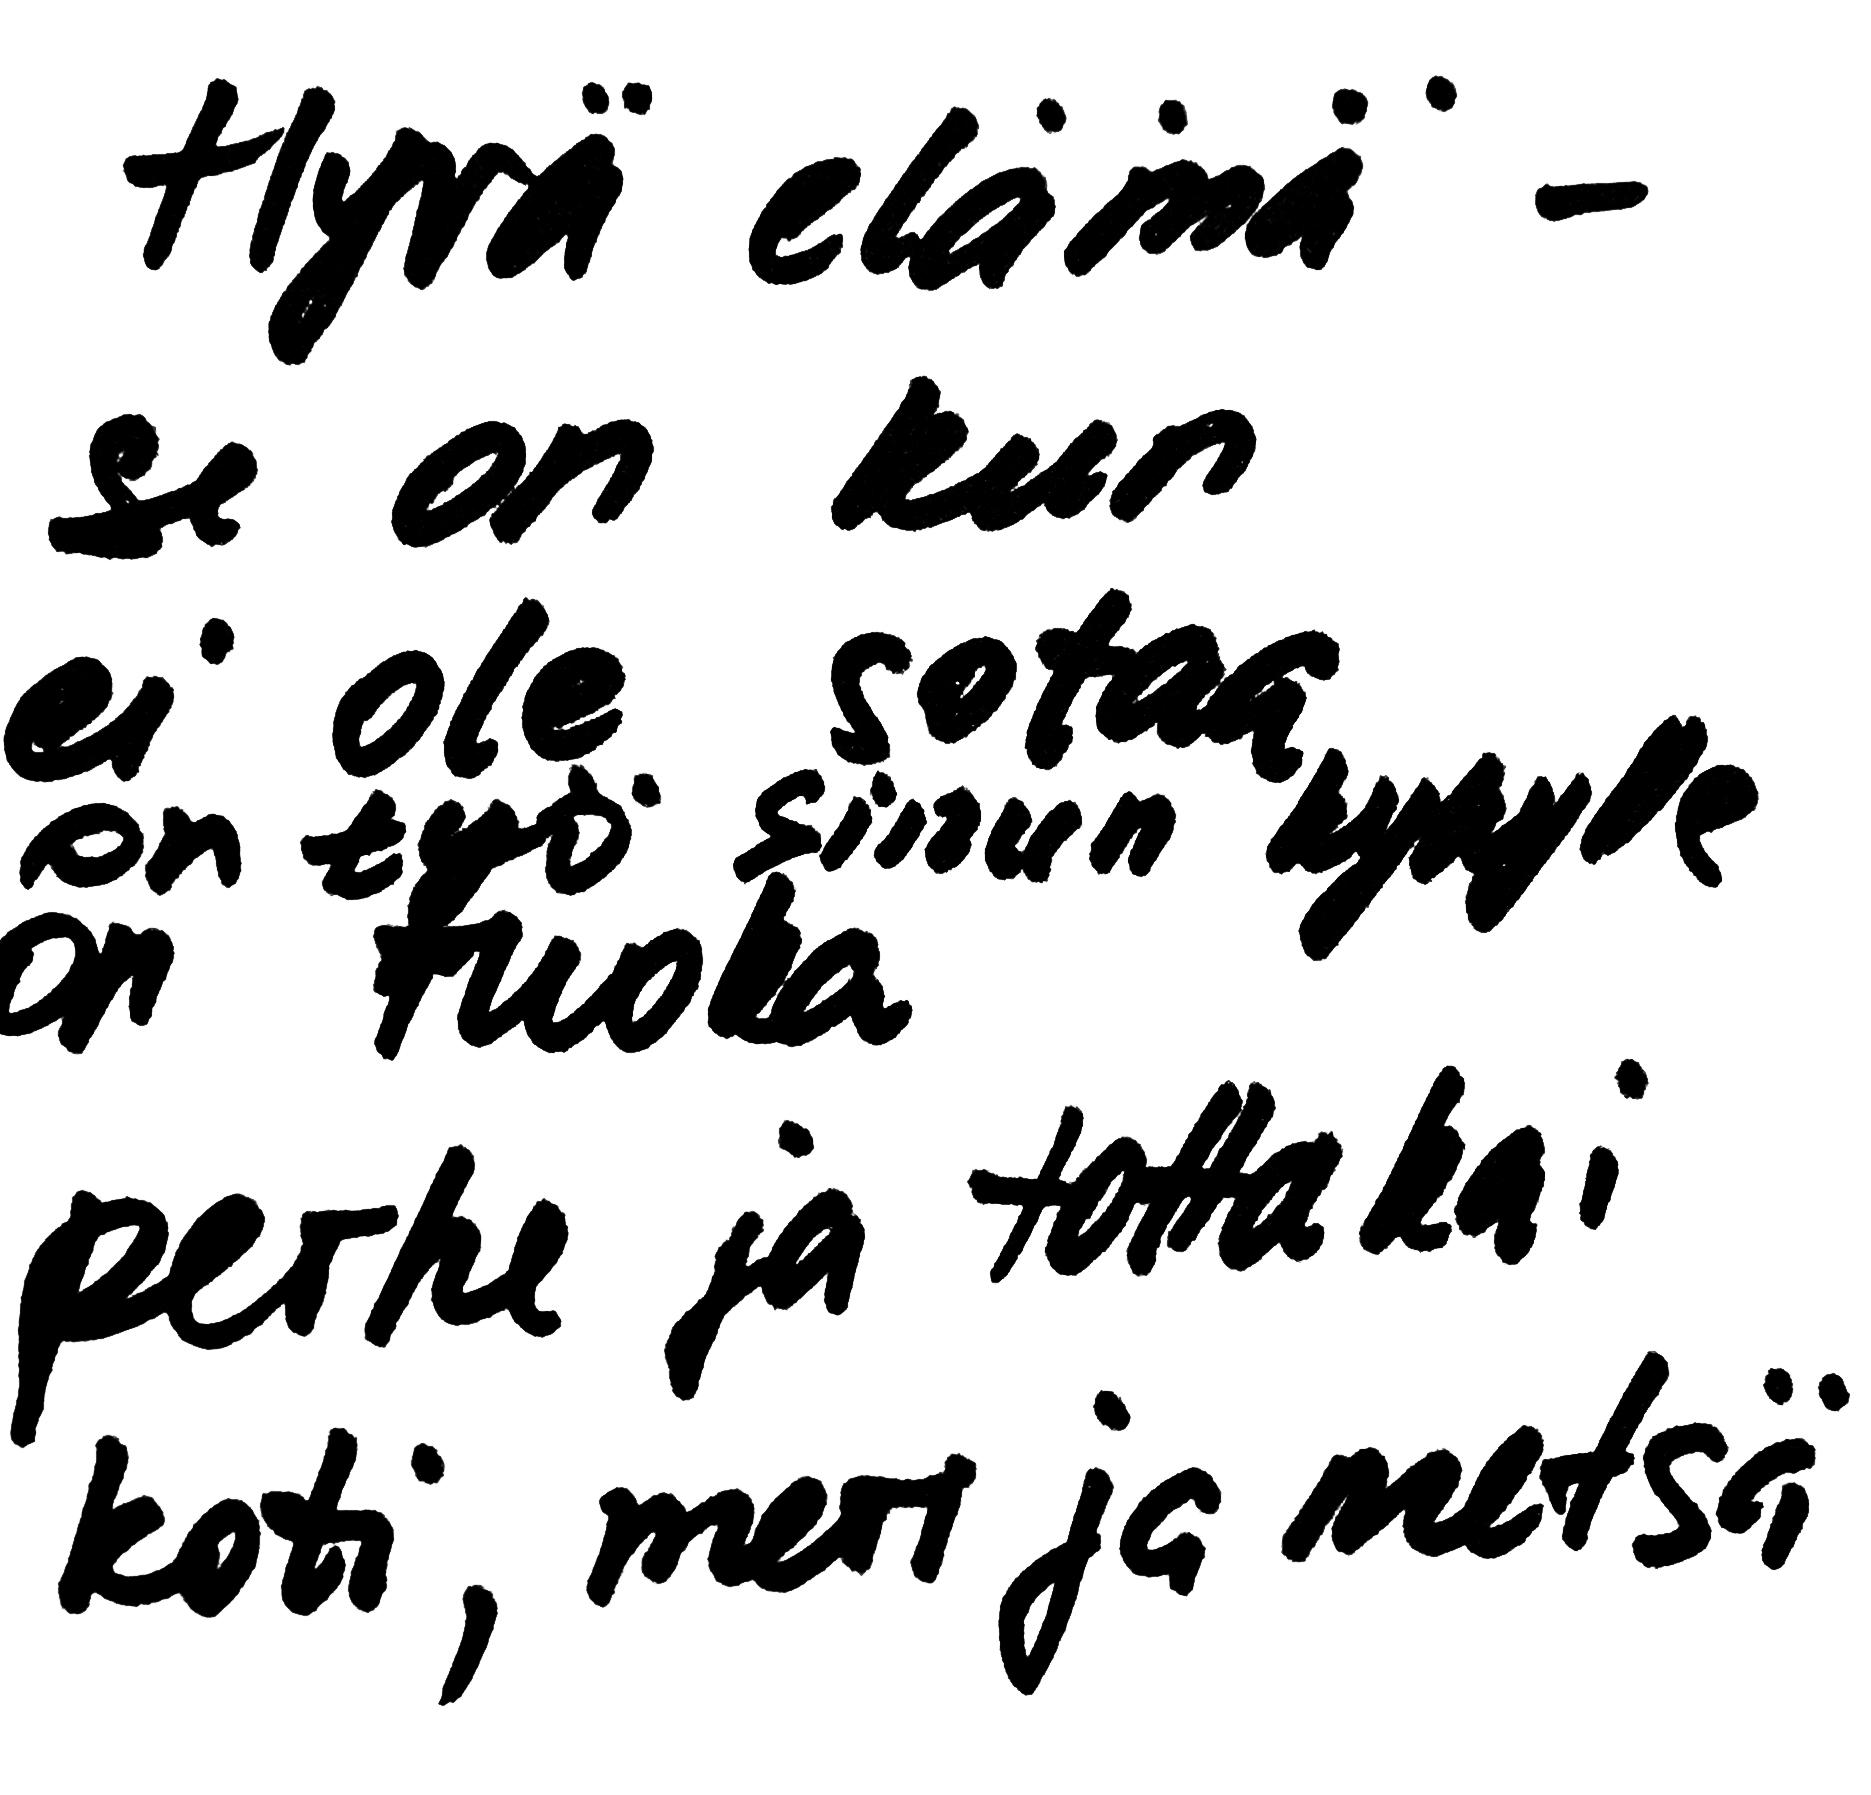 Hyvä elämä -
se on kun
ei ole sotaa
on työ sinun
on ruoka
perhe ja tottakai
koti, meri ja metsä